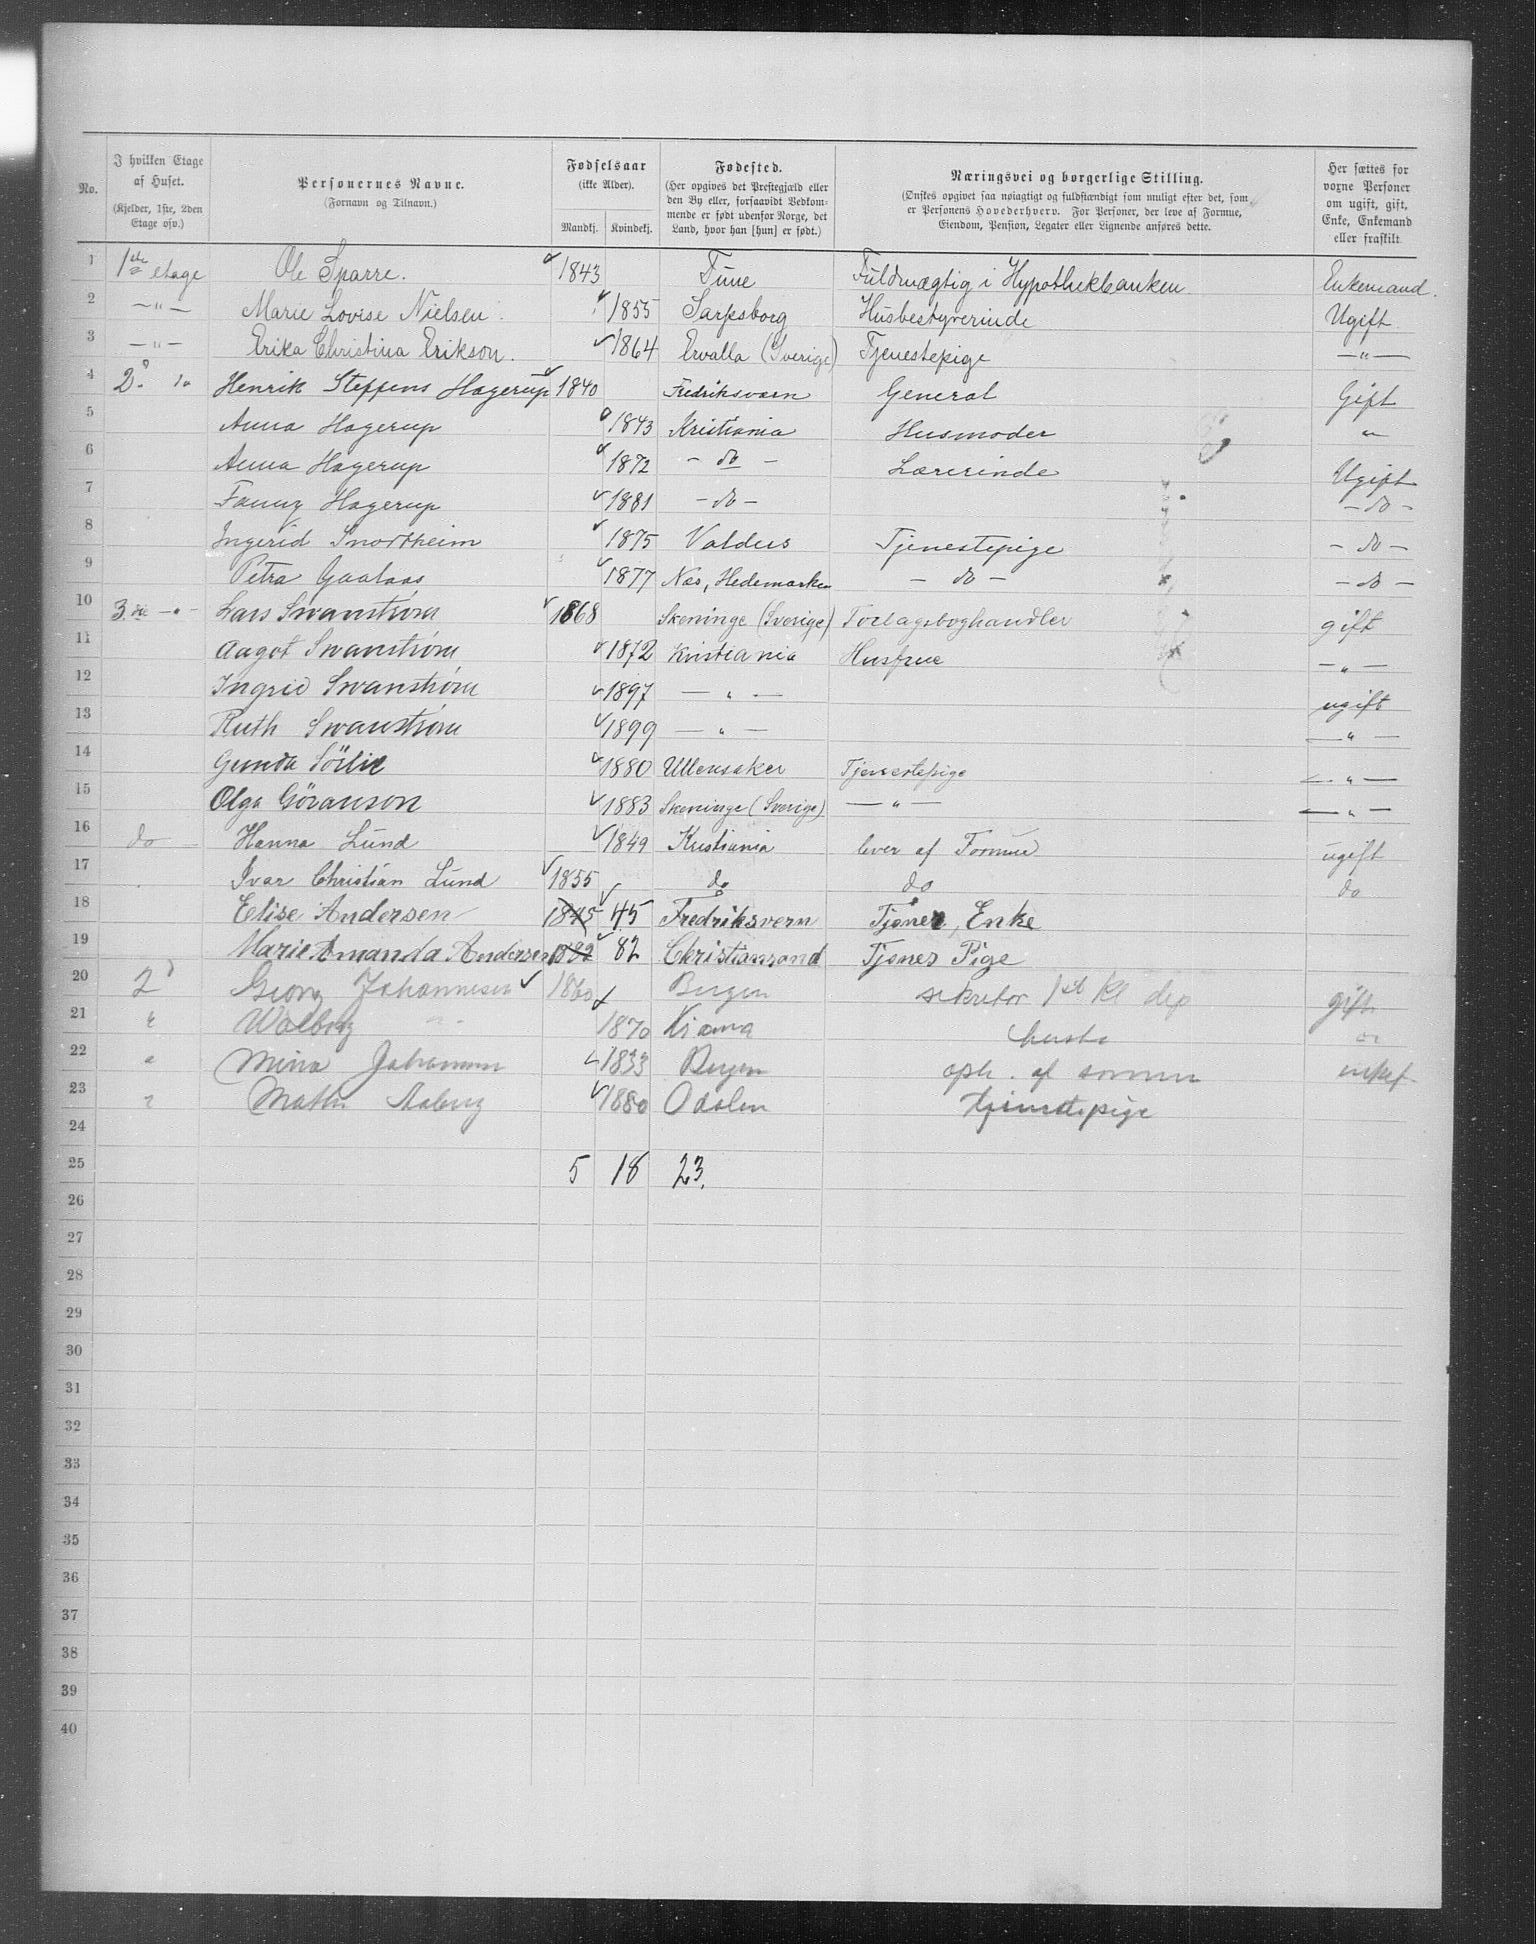 No.
I hvilken Etage af Huset. (Kjelder, 1ste, 2den Etage osv.)
Personernes Navne. (Fornavn og Tilnavn.)
Fødselsaar (ikke Alder). Mandkj. Kvindekj.
Fødested. (Her opgives det Prestegjæld eller den By eller, forsaavidt Vedkommende er født udenfor Norge, det Land, hvor han [hun] er født.)
Næringsvei og borgerlige Stilling. (Ønskes opgivet saa nøiagtigt og fuldstændigt som muligt efter det, som er Personens Hovederhverv. For Personer, der leve af Formue, Eiendom, Pension, Legater eller Lignende anføres dette.
Her sættes for voxne Personer om ugift, gift, Enke, Enkemand eller fraskilt
1 1ste etage Ole Sparre. 1843 Tune Fuldmægtig i Hypothekbanken Enkemand.
2 — " — Marie Lovise Nielsen. 1855 Sarpsborg Husbestyrerinde Ugift
3 — " — Erika Christina Erikson. 1864 Ervalla (Sverige) Tjenestepige — " —
4 2. do Henrik Steffens Hagerup 1840 Fredriksværn General Gift
5 Anna Hagerup 1843 Kristiania Husmoder "
6 Anna Hagerup 1872 - do - Lærerinde Ugift
7 Fanny Hagerup 1881 - do - - do -
8 Ingerid Snortheim 1875 Valders Tjenestepige - do -
9 Petra Gaalaas 1877 Næs, Hedemarken - do - - do -
10 3die - " - Lars Swanstrøm 1868 Skeninge (Sverige) Forlagsboghandler gift
11 Aagot Swanstrøm 1872 Kristiania Husfrue — " —
12 Ingrid Swanstrøm 1897 — " — ugift
13 Ruth Swanstrøm 1899 — " — — " —
14 Gunda Sörlie 1880 Ullensaker Tjenestepige — " —
15 Olga Göranson 1883 Skeninge (Sverige) — " — — " —
16 do Hanna Lund 1849 Kristiania lever af Formue ugift
17 Ivar Christian Lund 1855 do do do
18 Elise Andersen 1845 45 Fredriksvern Tjener, Enke
19 Marie Amanda Andersen 1882 82 Christiansand Tjener Pige
20 2 Georg Johannesen 1860 Bergen sekretær 1st kl dep gift
21 " Walborg " 1870 Kiania "
22 " Mina Johannesen 1833 Bergen enkef
23 " Aaberg 1880 Odalen tjenestepige
24
25 5 18 23.
26
27
28
29
30
31
32
33
34
35
36
37
38
39
40